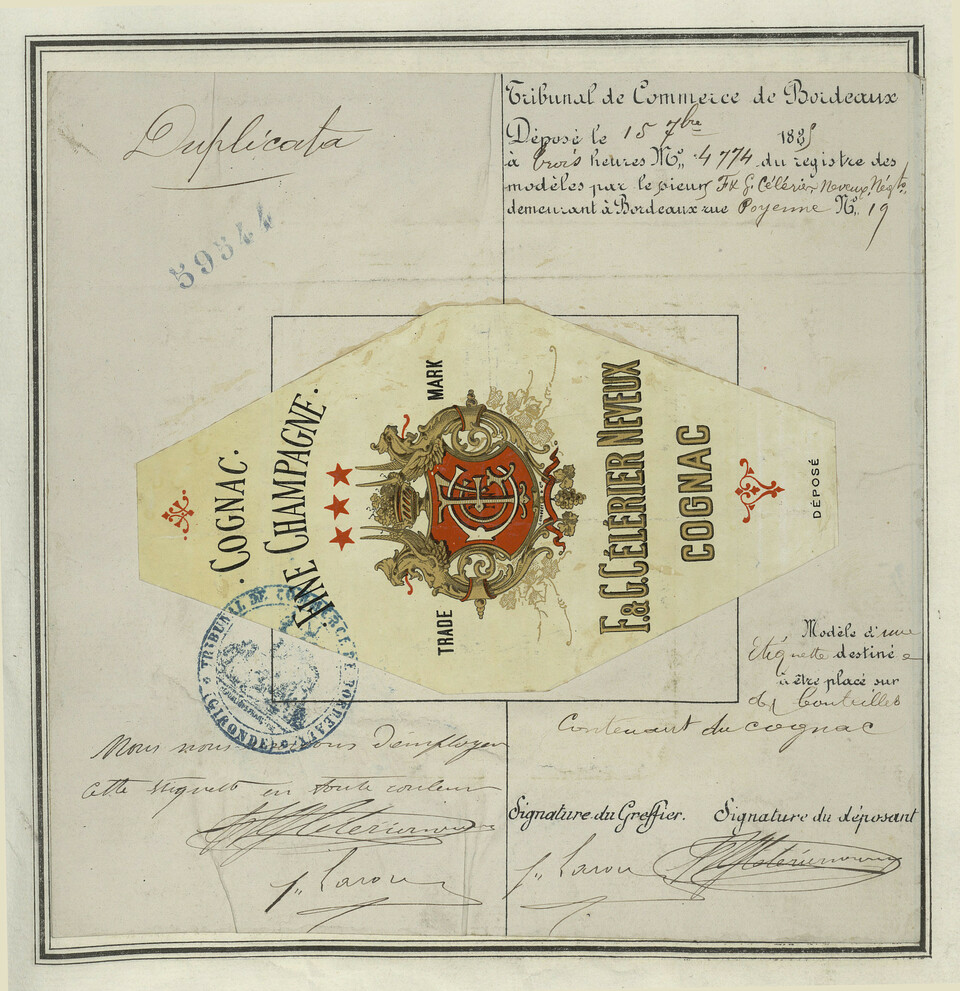 Duplicata
59544
Tribunal de Commerce de Bordeaux
Déposé le 15 7bre 188
à trois heures No. 4774 du registre des
modèles par le sieurs F & G. Célérier Neveux, Négts
demeurant à Bordeaux rue Poyenne No. 19
. COGNAC .
. FINE CHAMPAGNE .
TRADE MARK
F. & G. CÉLÉRIER NEVEUX
COGNAC
DÉPOSÉ
TRIBUNAL DE COMMERCE DE BORDEAUX
(GIRONDE)
Modèle d'une
étiquette destinée
à être placé sur
des bouteilles
contenant du cognac
Nous nous d'employer
cette étiquette en toute couleur
Signature du Greffier. Signature du déposant